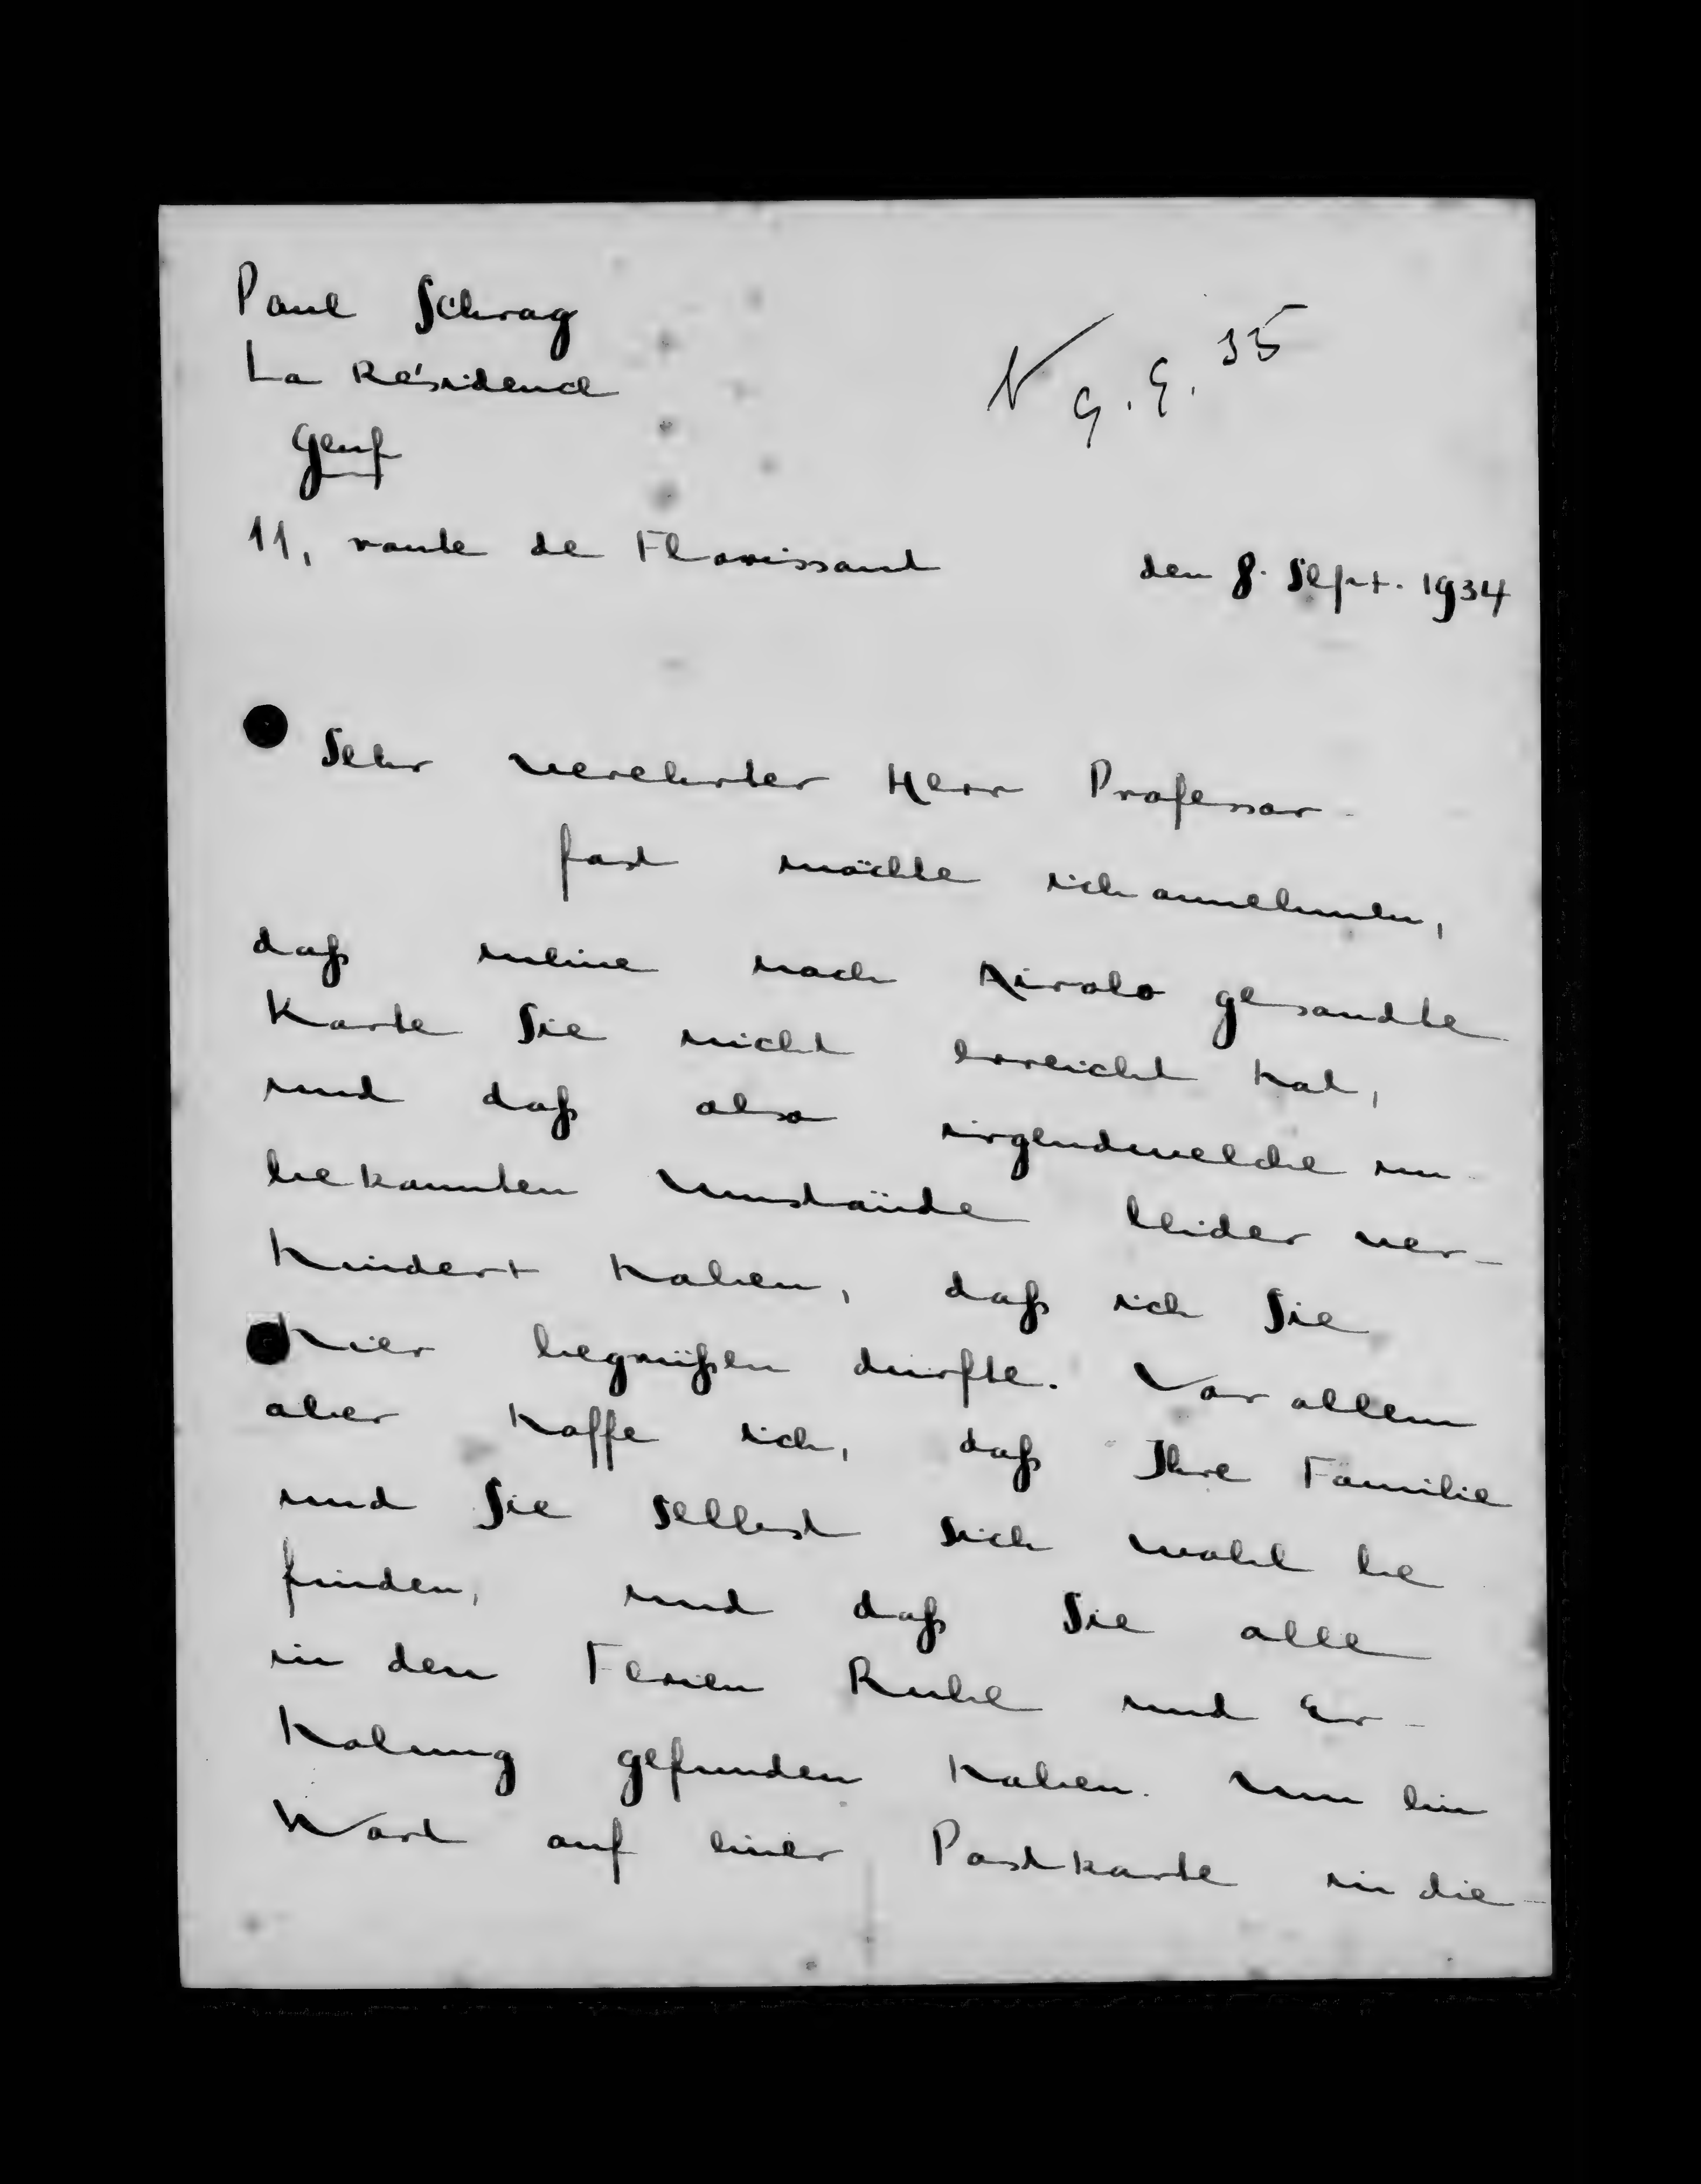 Paul Schrag
La Résidence
Genf
11, route de Florissant
den 8. Sept. 1934
9. 9. 35
Sehr verehrter Herr Professor -
fast möchte ich annehmen,
daß meine nach Airolo gesandte
Karte Sie nicht erreicht hat,
und daß also irgendwelche un-
bekannten Umstände leider ver-
hindert haben, daß ich Sie
hier begrüßen dürfte. Vor allem
aber hoffe ich, daß Ihre Familie
und Sie selbst sich wohl be
finden, und daß Sie alle
in den Ferien Ruhe und Er-
holung gefunden haben. Um ein
Wort auf einer Postkarte in die-